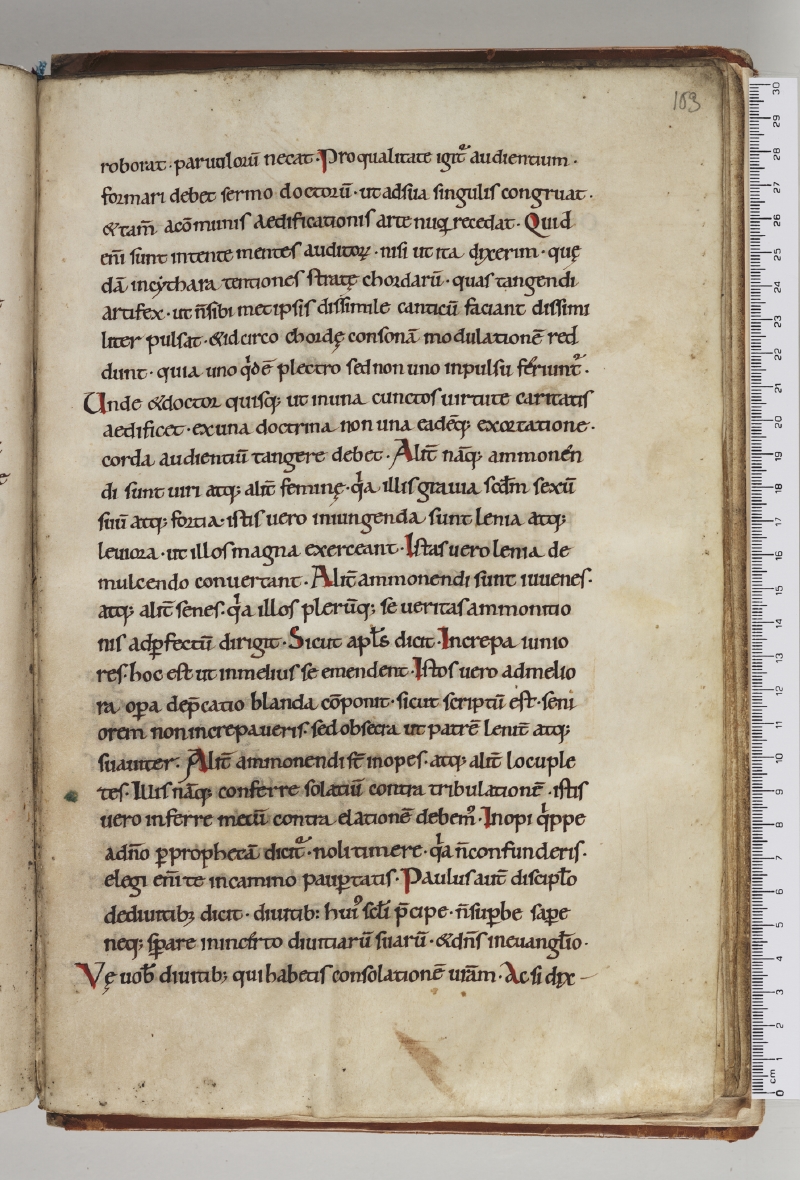 103
roborat· paruuloꝝ necat· Pro qualitate igit᷑ audientium·
formari debet sermo doctorū· ut ad sua singulis congruat·
& tam̄ a cōmunis aedificationis arte nuq̄ recedat· Quid
eni̅ sunt intente mentes auditoꝝ· nisi ut ita dixerim· quę
dā in cythara tentiones stratę chordarū· quas tangendi
artifex· ut n̄ sibi met ipsis dissimile canticū faciant dissimi
liter pulsat· & idcirco chordę consonā modulationē red
dunt· quia uno qͥdē plectro sed non uno inpulsu feriunt᷑·
Unde & doctor quisq; ut in una cunctos uirtute caritatis
aedificet· ex una doctrina non una eadēq; exortatione·
corda audientiū tangere debet· Alit̄ nāq; ammonen
di sunt uiri atq; alit̄ feminę· qͥa illis grauia scd̄m sexū
suū atq; fortia· istis uero iniungenda sunt lenia atq;
leuiora· ut illos magna exerceant· Istas uero lenia de
mulcendo conuertant· Alit̄ ammonendi sunt iuuenes·
atq; alit̄ senes· qͥa illos plerūq; se ueritas ammonitio
nis ad ꝑfectū dirigit· Sicut apl̄s dicit· Increpa iunio
res· hoc est ut in melius se emendent· Istos uero ad melio
ra oꝑa dep̄catio blanda cōponit· sicut scriptū est· seni
orem non increpaueris· sed obsecra ut patrē lenit̄ atq;
suauiter· Alit̄ ammonendi st̄ inopes· atq; alit̄ locuple
tes· Illis nāq; conferre solatiū contra tribulationē· istis
uero inferre metū contra elationē debem᷒· Inopi qͥppe
a dn̄o ꝑ prophetā dicit᷑· noli timere· qͥa n̄ confunderis·
elegi eni̅ te in camino pauꝑtatis· Paulus aut̄ discipl̄o
de diuitib; dicit· diuitib: hui᷒ scl̄i p̄cipe· n̄ suꝑbe saꝑe
neq; sꝑare in incerto diuitiarū suarū· & dn̄s in euangl̄io·
Vę uob̄ diuitib; qui habetis consolationē ur̄am· Ac si dix